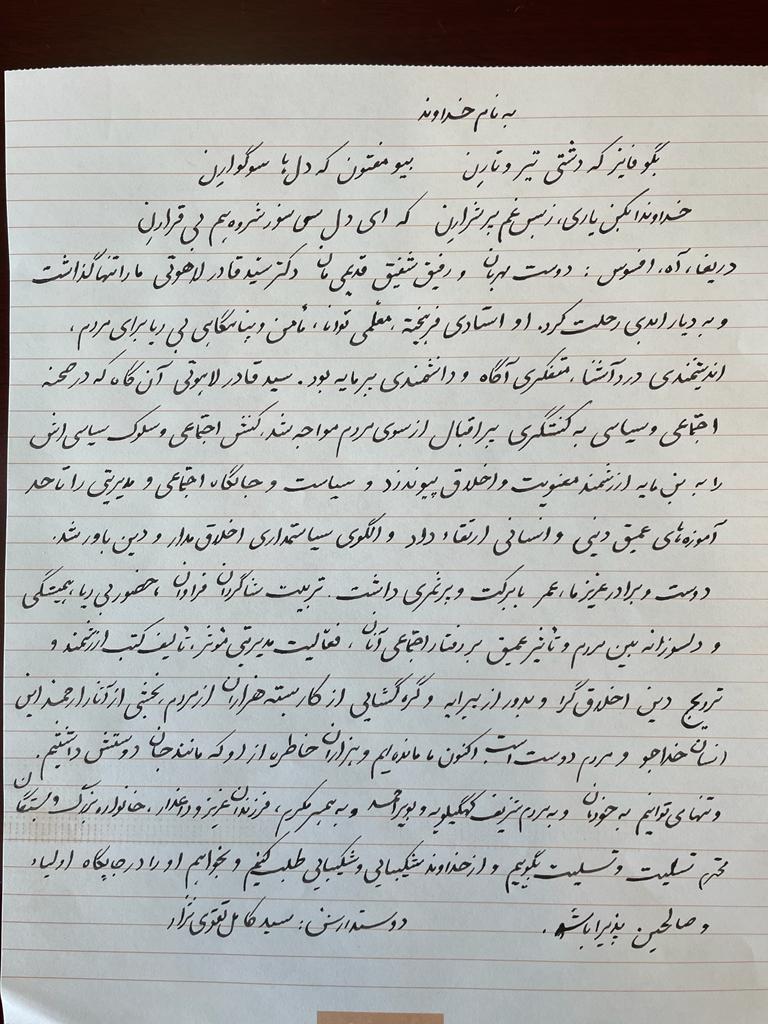 به نام خداوند
بگو فایز که دشتی تیر و تارن بیو مفتون که دل ها سوگوارن
خداوندا بکن یاری، ز بس غم بر شرارن که ای دل سی شروه بی قرارن
دریغا، آه، افسوس: دوست مهربان و رفیق شفیق قدیمی مان دکتر سید قادر لاهوتی ما را تنها گذاشت
و به دیار ابدی رحلت کرد. او استادی فرهیخته، معلمی توانا، مأمن و پناهگاهی بی ریا برای مردم،
اندیشمندی درد آشنا، متفکری آگاه و دانشمندی پر مایه بود. سید قادر لاهوتی آن گاه که در صحنه
اجتماعی و سیاسی به کنشگری پر اقبال از سوی مردم مواجه شد، کنش اجتماعی و سلوک سیاسی اش
را به بن مایه ارزشمند معنویت و اخلاق پیوند زد و سیاست و جایگاه اجتماعی و مدیریتی را تا حد
آموزه های عمیق دینی و انسانی ارتقاء داد و الگوی سیاستمداری اخلاق مدار و دین باور شد.
دوست و برادر عزیز ما، عمر با برکت و پر ثمری داشت. تربیت شاگردان فراوان، حضور بی ریا، همیشگی
و دلسوزانه بین مردم و تأثیر عمیق بر رفتار اجتماعی آنان، فعالیت مدیریتی مؤثر، تألیف کتب ارزشمند و
ترویج دین اخلاق گرا و بدور از پیرایه و گره گشایی از کار بسته هزاران از مردم، بخشی از آثار ارجمند این
انسان خداجو و مردم دوست است. اکنون ما مانده ایم و هزاران خاطره از او که مانند جان دوستش داشتیم.
و تنها می توانیم به خودمان و به مردم شریف کهگیلویه و بویراحمد و به همسر مکرم، فرزندان عزیز و داغدار، خانواده بزرگ و بستگان
محترم تسلیت و تسلیت بگوییم و از خداوند شکیبایی و شکیبایی طلب کنیم و بخواهیم او را در جایگاه اولیاء
و صالحین پذیرا باشد. دوستدارش: سید کامل تقوی نژاد